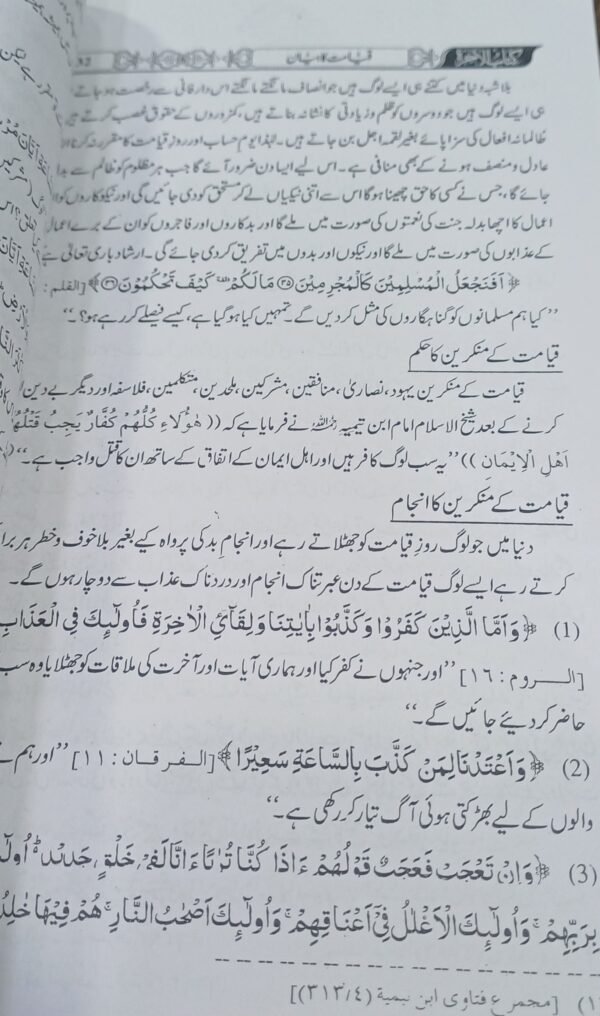 کتاب الآخرۃ قیامت کا بیان
بلاشبہ دنیا میں کتنے ہی ایسے لوگ ہیں جو انصاف مانگتے مانگتے اس دارفانی سے رخصت ہو جاتے
ہی ایسے لوگ ہیں جو دوسروں کو ظلم و زیادتی کا نشانہ بناتے ہیں، کمزوروں کے حقوق غصب کرتے ہیں
ظالمانہ افعال کی سزا پائے بغیر لقمہ اجل بن جاتے ہیں۔ لہٰذا یوم حساب اور روز قیامت کا مقرر نہ کرنا
عادل و منصف ہونے کے بھی منافی ہے۔ اس لیے ایسا دن ضرور آئے گا جب ہر مظلوم کو ظالم سے
جائے گا، جس نے کسی کا حق چھینا ہوگا اس سے اتنی نیکیاں لے کر مستحق کو دی جائیں گی اور نیکوکاروں کو
اعمال کا اچھا بدلہ جنت کی نعمتوں کی صورت میں ملے گا اور بدکاروں اور فاجروں کو ان کے برے اعمال
کے عذابوں کی صورت میں ملے گا اور نیکوں اور بدوں میں تفریق کر دی جائے گی۔ ارشاد باری تعالیٰ ہے
﴿اَفَنَجْعَلُ الْمُسْلِمِيْنَ كَالْمُجْرِمِيْنَ ۳۵ مَا لَكُمْ كَيْفَ تَحْكُمُوْنَ ۳۶﴾ [القلم :
’’کیا ہم مسلمانوں کو گناہگاروں کی مثل کر دیں گے۔ تمہیں کیا ہو گیا ہے، کیسے فیصلے کر رہے ہو؟۔‘‘
قیامت کے منکرین کا حکم
قیامت کے منکرین یہود، نصاریٰ، منافقین، مشرکین، ملحدین، متکلمین، فلاسفہ اور دیگر بے دین
کرنے کے بعد شیخ الاسلام امام ابن تیمیہ رحمہ اللہ نے فرمایا ہے کہ ((هٰؤُلَاءِ كُلُّهُمْ كُفَّارٌ يَجِبُ قَتْلُهُمْ
اَهْلِ الْاِيْمَانِ)) ’’یہ سب لوگ کافر ہیں اور اہل ایمان کے اتفاق کے ساتھ ان کا قتل واجب ہے۔‘‘
قیامت کے منکرین کا انجام
دنیا میں جو لوگ روز قیامت کو جھٹلاتے رہے اور انجام بد کی پرواہ کیے بغیر بلا خوف و خطر ہر برا
کرتے رہے ایسے لوگ قیامت کے دن عبرتناک انجام اور دردناک عذاب سے دوچار ہوں گے۔
(1) ﴿وَاَمَّا الَّذِيْنَ كَفَرُوْا وَكَذَّبُوْا بِاٰيٰتِنَا وَلِقَآئِ الْاٰخِرَةِ فَاُولٰٓئِكَ فِى الْعَذَابِ
[الـروم : ۱۶] ’’اور جنہوں نے کفر کیا اور ہماری آیات اور آخرت کی ملاقات کو جھٹلایا وہ سب
حاضر کر دیئے جائیں گے۔‘‘
(2) ﴿وَاَعْتَدْنَا لِمَنْ كَذَّبَ بِالسَّاعَةِ سَعِيْرًا﴾ [الـفـرقـان : ۱۱] ’’اور ہم نے
والوں کے لیے بھڑکتی ہوئی آگ تیار کر رکھی ہے۔‘‘
(3) ﴿وَاِنْ تَعْجَبْ فَعَجَبٌ قَوْلُهُمْ ءَاِذَا كُنَّا تُرٰبًا ءَاِنَّا لَفِىْ خَلْقٍ جَدِيْدٍ اُولٰٓ
بِرَبِّهِمْ وَاُولٰٓئِكَ الْاَغْلٰلُ فِىْٓ اَعْنَاقِهِمْ وَاُولٰٓئِكَ اَصْحٰبُ النَّارِ هُمْ فِيْهَا خٰلِدُ
(۱) [مجموع فتاوى ابن تيمية (۳۱۳/۴)]